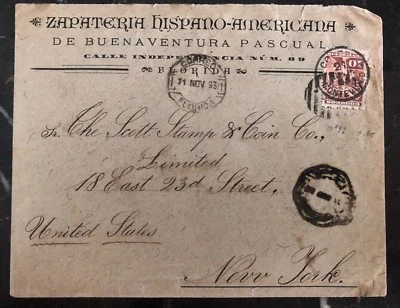 ZAPATERIA HISPANO-AMERICANA
DE BUENAVENTURA PASCUAL
CALLE INDEPENDENCIA NÚM. 89
FLORIDA
CORREO
21 NOV 93
FLORIDA
10
The Scott Stamp & Coin Co.,
Limited
18 East 23d Street,
United States
New York.